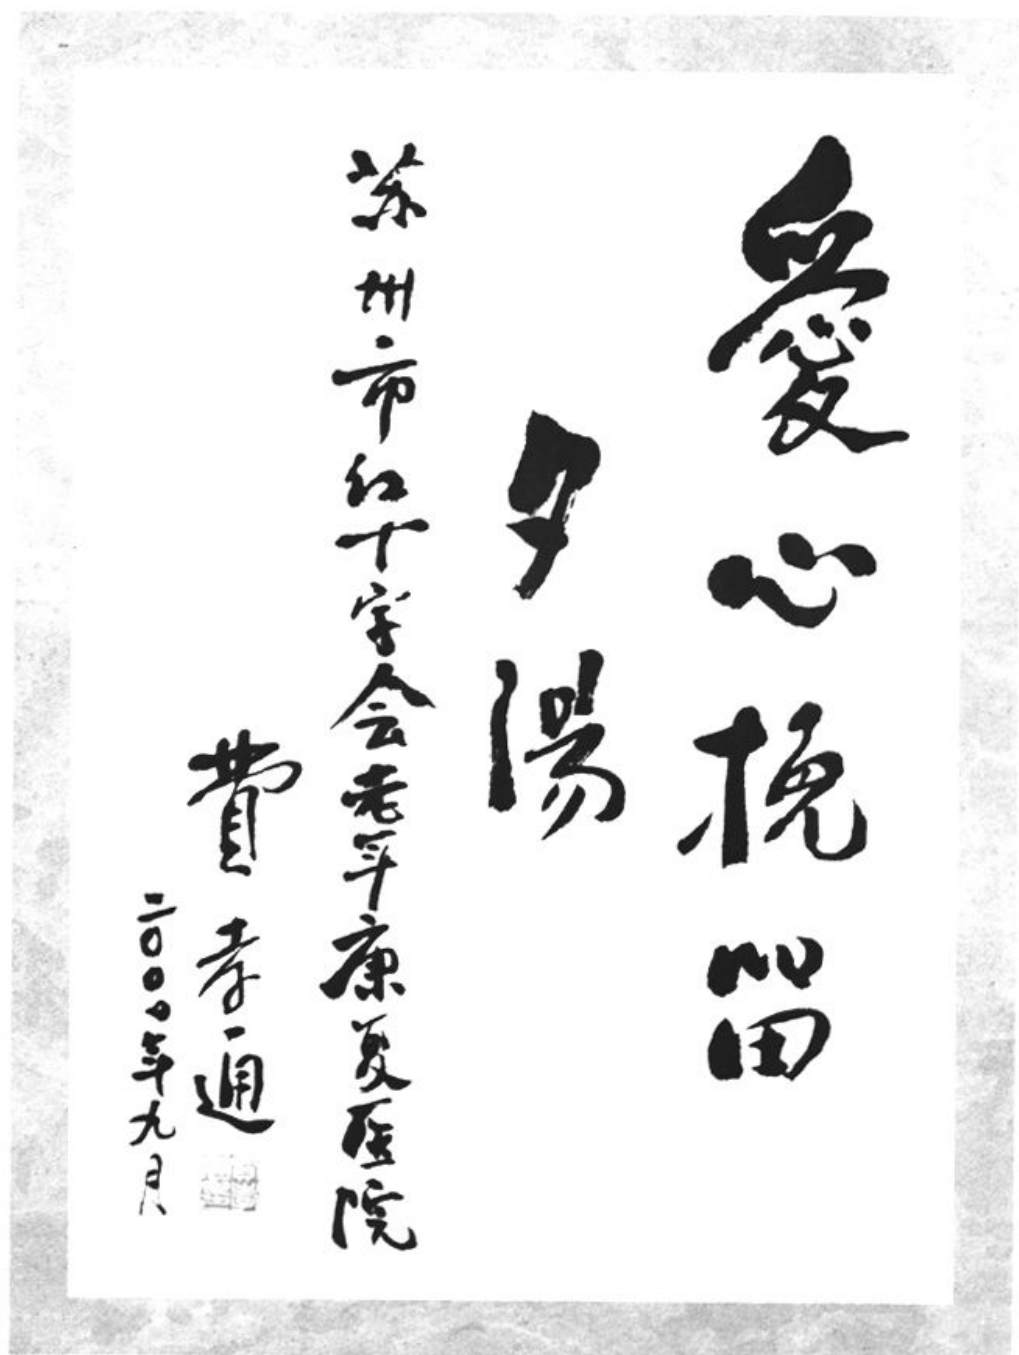 愛心挽留
夕陽
苏州市红十字会老年康复医院
費孝通
二〇〇〇年九月